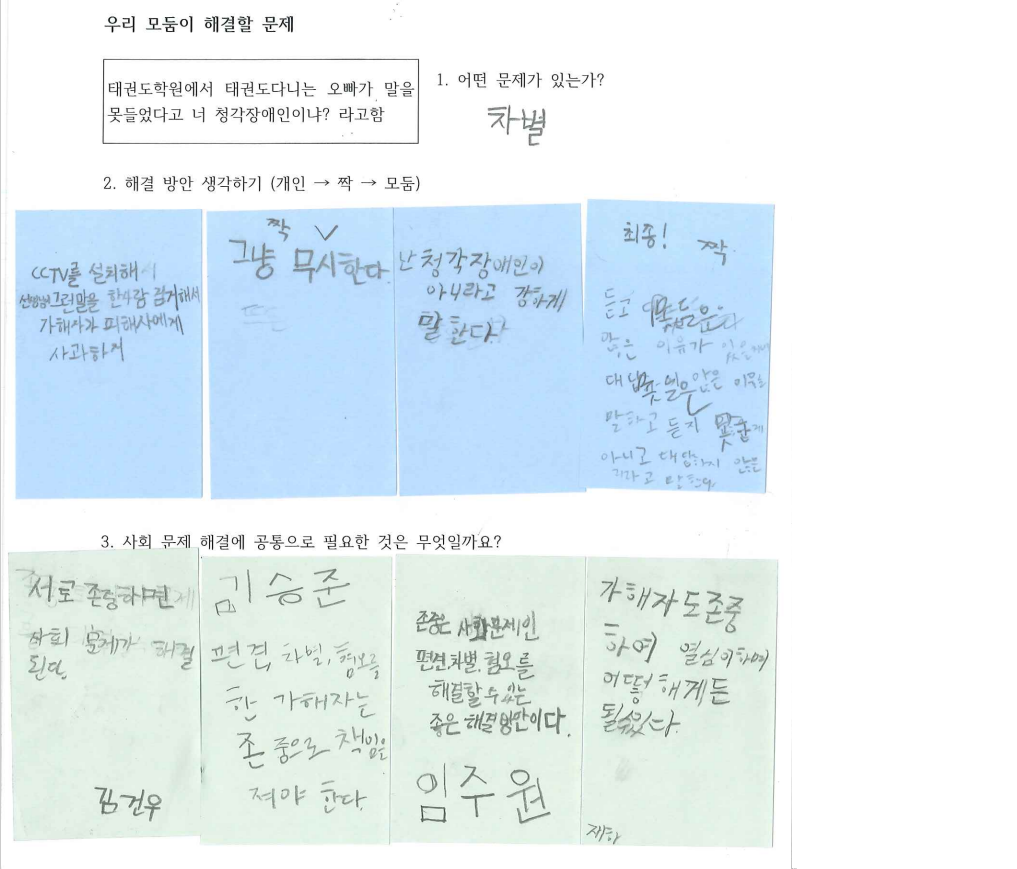 우리 모둠이 해결할 문제
태권도학원에서 태권도다니는 오빠가 말을
못들었다고 너 청각장애인이냐? 라고함
1. 어떤 문제가 있는가?
차별
2. 해결 방안 생각하기 (개인 → 짝 → 모둠)
CCTV를 설치해
그런말을 한사람 검거해서
가해자가 피해자에게
사과하기
짝
그냥 무시한다
난 청각장애인이
아니라고 강하게
말한다.
최종!
짝
듣고
않은 이유가
않은
말하고 듣지
아니고 대답하지 않은
3. 사회 문제 해결에 공통으로 필요한 것은 무엇일까요?
서로 존중하면
사회 문제가 해결
된다
김건우
김승준
편견, 차별, 혐오를
한 가해자는
존중으로 책임을
져야 한다.
존중은 사회문제인
편견, 차별, 혐오를
해결할 수 있는
좋은 해결방안이다.
임주원
가해자도 존중
하여 열심히하여
어떻해게든
될수있다.
재하